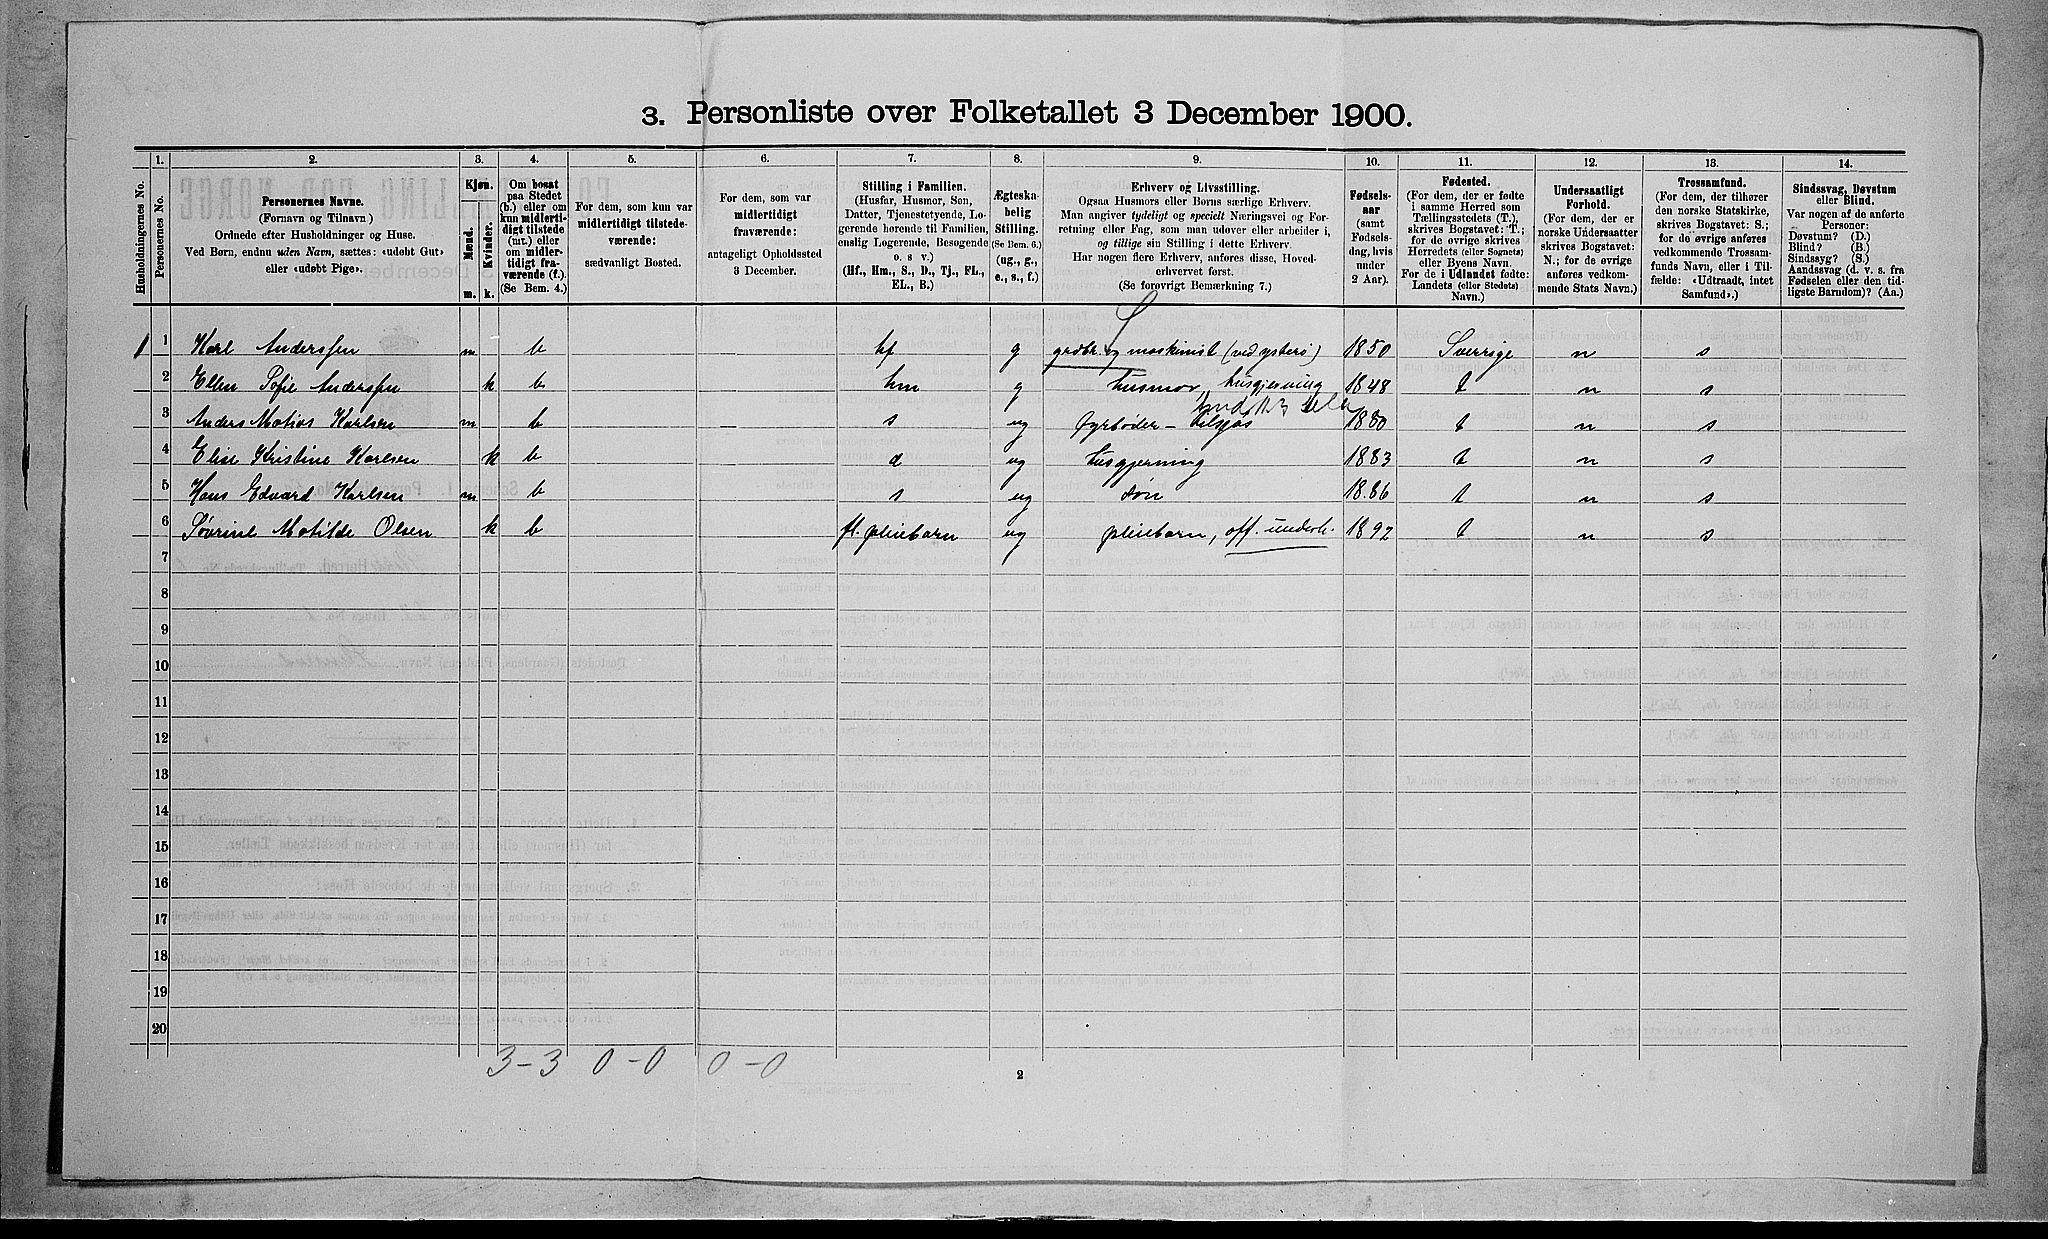 3. Personliste over Folketallet 3 December 1900.
Husholdningernes No.
1.
Personernes No.
2.
Personernes Navne.
(Fornavn og Tilnavn)
Ordnede efter Husholdninger og Huse.
Ved Børn, endnu uden Navn, sættes: «udøbt Gut»
eller «udøbt Pige».
3.
Kjøn.
Mænd.
Kvinder.
m. k.
4.
Om bosat
paa Stedet
(b.) eller om
kun midlerti-
digt tilstede
(mt.) eller
om midler-
tidigt fra-
værende (f.).
(Se Bem. 4.)
5.
For dem, som kun var
midlertidigt tilstede-
værende:
sædvanligt Bosted.
6.
For dem, som var
midlertidigt
fraværende:
antageligt Opholdssted
3 December.
7.
Stilling i Familien.
(Husfar, Husmor, Søn,
Datter, Tjenestetyende, Lo-
gerende hørende til Familien,
enslig Logerende, Besøgende
o. s v.)
(Hf., Hm., S., D., Tj., FL.,
EL., B.)
8.
Ægteska-
belig
Stilling.
(Se Bem. 6.)
(ug., g.,
e., s., f.)
9.
Erhverv og Livsstilling.
Ogsaa Husmors eller Børns særlige Erhverv.
Man angiver tydeligt og specielt Næringsvei og For-
retning eller Fag, som man udøver eller arbeider i,
og tillige sin Stilling i dette Erhverv.
Har nogen flere Erhverv, anføres disse, Hoved-
erhvervet først.
(Se forøvrigt Bemærkning 7.)
10.
Fødsels-
aar
(samt
Fødsels-
dag, hvis
under
2 Aar).
11.
Fødested.
(For dem, der er fødte
i samme Herred som
Tællingsstedets (T.),
skrives Bogstavet: T.;
for de øvrige skrives
Herredets (eller Sognets)
eller Byens Navn.
For de i Udlandet fødte:
Landets (eller Stedets)
Navn.)
12.
Undersaatligt
Forhold.
(For dem, der er
norske Undersaatter
skrives Bogstavet:
N.; for de øvrige
anføres vedkom-
mende Stats Navn.)
13.
Trossamfund.
(For dem, der tilhører
den norske Statskirke,
skrives Bogstavet: S.;
for de øvrige anføres
vedkommende Trossam-
funds Navn, eller i Til-
fælde: «Udtraadt, intet
Samfund».)
14.
Sindssvag, Døvstum
eller Blind.
Var nogen af de anførte
Personer:
Døvstum? (D.)
Blind? (B.)
Sindssyg? (S.)
Aandssvag (d. v. s. fra
Fødselen eller den tid-
ligste Barndom)? (Aa.)
1 1 Karl Anderssen m b hf g grdbr. og maskinist (ved ysteri) 1850 Sverrige n s
2 Ellen Sofie Anderssen k b hm g husmor, husgjerning 1848 t n s
3 Anders Matias Karlsen m b s ug fyrbøder – 1880 t n s
4 Elise Kristine Karlsen k b d ug husgjerning 1883 t n s
5 Hans Edvard Karlsen m b s ug søn 1886 t n s
6 Søvrine Matilde Olsen k b fl. pleiebarn ug pleiebarn, off. underh. 1892 t n s
7
8
9
10
11
12
13
14
15
16
17
18
19
20
3-3 0-0 0-0
2